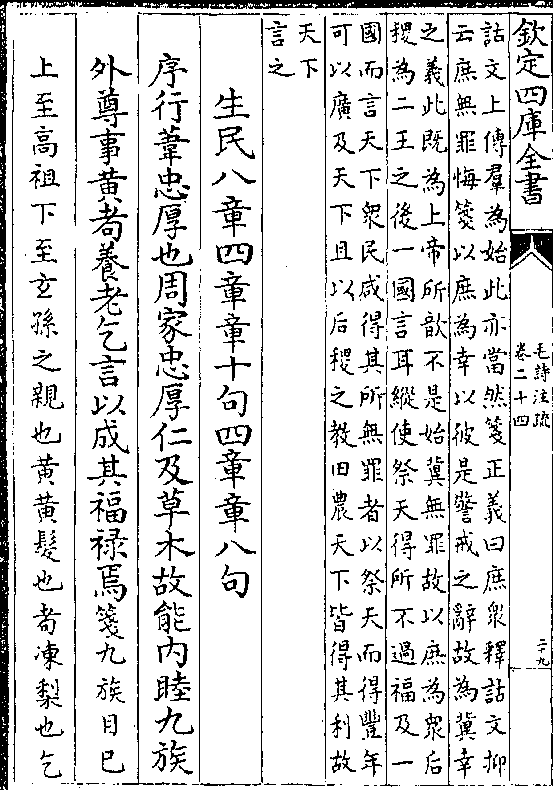 欽定四庫全書
毛詩注疏
卷二十四
二十九
詁文上傳羣為始此亦當然箋正義曰庶衆釋詁文抑
云庶無罪悔箋以庶為幸以彼是警戒之辭故為冀幸
之義此既為上帝所歆不是始冀無罪故以庶為衆后
稷為二王之後一國言耳縱使祭天得所不過福及一
國而言天下衆民咸得其所無罪者以祭天而得豐年
可以廣及天下且以后稷之教田農天下皆得其利故
天下
言之
生民八章四章章十句四章章八句
序行葦忠厚也周家忠厚仁及草木故能内睦九族
外尊事黄耇養老乞言以成其福禄焉箋九族自己
上至高祖下至玄孫之親也黄黄髮也耇凍梨也乞